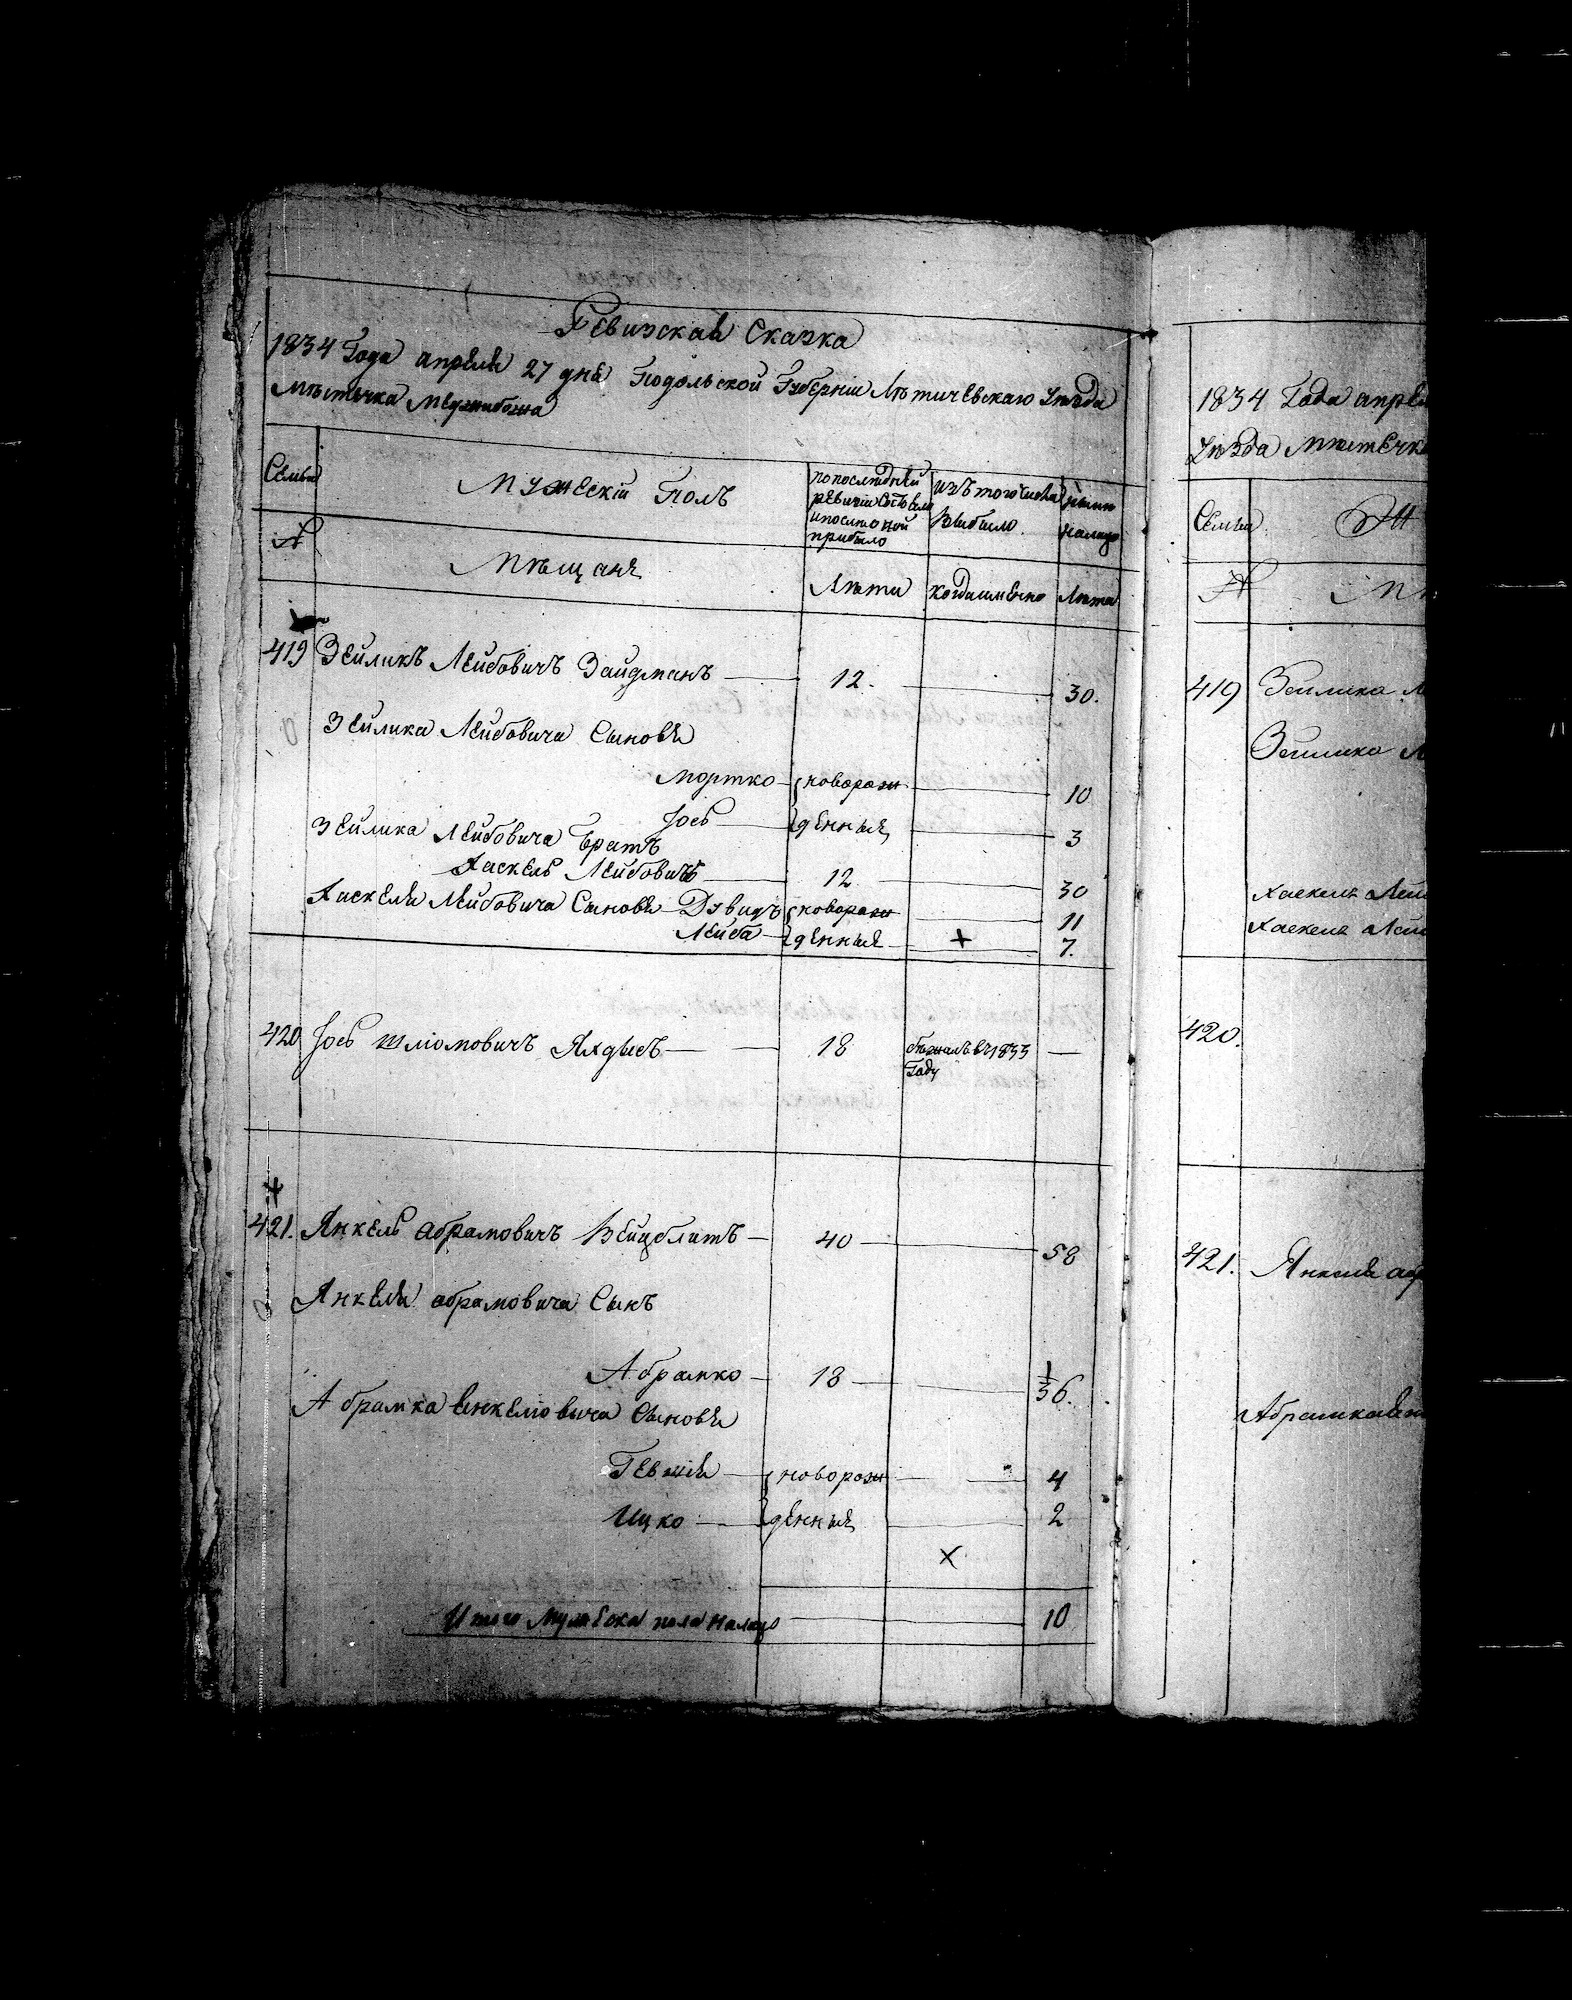 Ревизская Сказка
1834 Года апреля 27 дня Подольской Губерніи Лѣтичевскаго Уѣзда
Мѣстечка Меджибожа
Семья
Мужескій Полъ
попослѣдней
ревизіи состояло
и после оной
прибыло
изъ того числа
Выбыло
ныне
налицо
№
Мѣщане
Лѣта
когда именно
Лѣта
419 Зейликъ Лейбовичъ Зайдманъ 12. 30.
Зейлика Лейбовича Сыновя
Мортко новорож 10
Іось денные 3
Зейлика Лейбовича Братъ
Хаскель Лейбовичъ 12 30
Хаскеля Лейбовича Сыновя Дувидъ новорож 11
Лейба денные + 7.
420 Іось Шліомовичъ Яхдысъ 18 бѣжалъ въ 1833
Году
421. Янкель Абрамовичъ Вейцблитъ 40 58
Янкеля Абрамовича Сынъ
Абрамко 18 36.
Абрамка Енкеліовича Сыновя
Гевшія новорож 4
Ицко денные 2
×
Итого Мужеска пола налицо 10
1834 Года апреля
Уѣзда Мѣстечка
Семья
№
419 Зейлика
Зейлика
Хаскеля Лей
Хаскеля Лей
420.
421. Янкеля Абр
Абрамка Ен